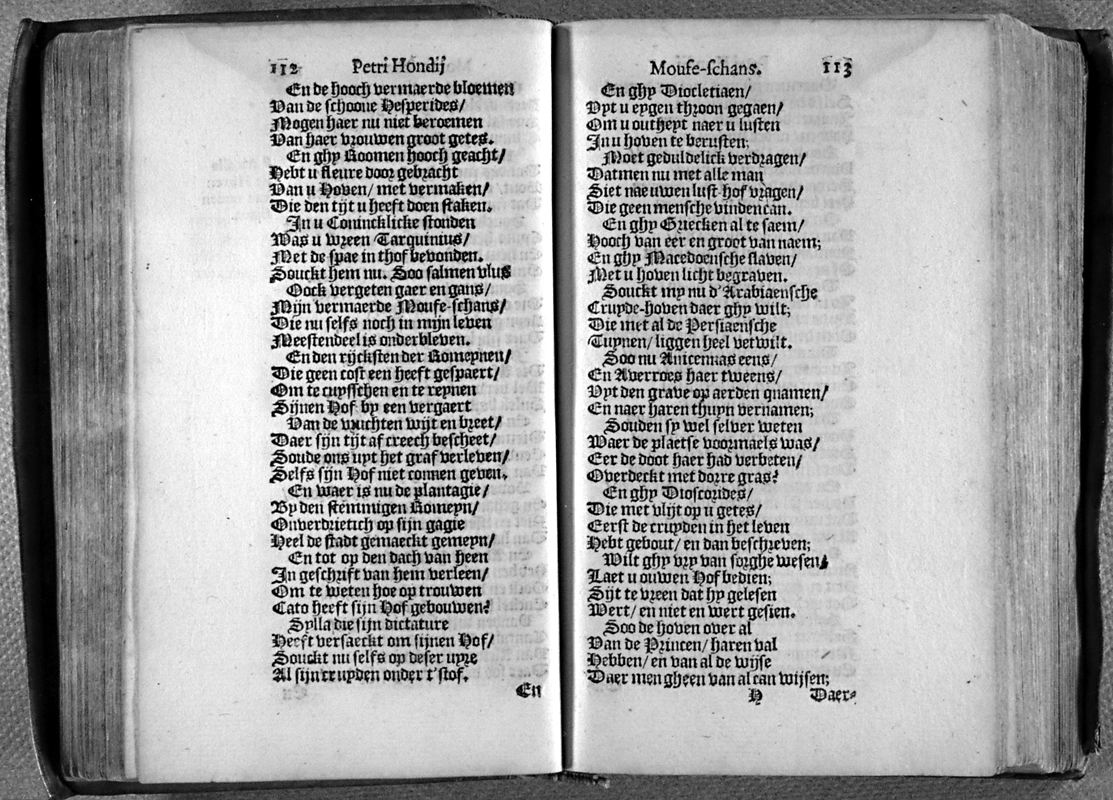 112 Petri Hondij
En de hooch vermaerde bloemen
Van de schoone Hesperides/
Mogen haer nu niet beroemen
Van haer vrouwen groot getes.
En ghy Roomen hooch geacht/
Hebt u fleure door gebracht
Van u Hoven/ met vermaken/
Die den tijt u heeft doen staken.
In u Conincklicke stonden
Was u wreen Tarquinius/
Met de spae in thof bevonden.
Souckt hem nu. Soo salmen vlus
Oock vergeten gaer en gans/
Mijn vermaerde Moufe-schans/
Die nu selfs noch in mijn leven
Meestendeel is onderbleven.
En den rijcksten der Romeynen/
Die geen cost een heeft gespaert/
Om te cuysschen en te reynen
Sijnen Hof by een vergaert
Van de vruchten wijt en breet/
Daer sijn tijt af creech bescheet/
Soude ons uyt het graf verleven/
Selfs sijn Hof niet connen geven.
En waer is nu de plantagie/
By den stemmigen Romeyn/
Onverdrietich op sijn gagie
Heel de stadt gemaeckt gemeyn/
En tot op den dach van heen
In geschrift van hem verleen/
Om te weten hoe op trouwen
Cato heeft sijn Hof gebouwen?
Sylla die sijn dictature
Heeft versaeckt om sijnen Hof/
Souckt nu selfs op deser uyre
Al sijn cruyden onder t'stof.
En
Moufe-schans. 113
En ghy Diocletiaen/
Uyt u eygen throon gegaen/
Om u outheyt naer u lusten
In u hoven te berusten;
Moet geduldelick verdragen/
Datmen nu met alle man
Siet nae uwen lust-hof vragen/
Die geen mensche vinden can.
En ghy Griecken al te saem/
Hooch van eer en groot van naem;
En ghy Macedoensche slaven/
Met u hoven licht begraven.
Souckt my nu d'Arabiaensche
Cruyde-hoven daer ghy wilt;
Die met al de Persiaensche
Tuynen/ liggen heel verwilt.
Soo nu Avicennas eens/
En Averroes haer tweens/
Uyt den grave op aerden quamen/
En naer haren thuyn vernamen;
Souden sy wel selver weten
Waer de plaetse voormaels was/
Eer de doot haer had verbeten/
Overdeckt met dorre gras?
En ghy Dioscorides/
Die met vlijt op u getes/
Eerst de cruyden in het leven
Hebt gebout/ en dan beschreven;
Wilt ghy vry van sorghe wesen/
Laet u ouwen Hof bedien;
Sijt te vreen dat hy gelesen
Wert/ en niet en wert gesien.
Soo de hoven over al
Van de Princen/ haren val
Hebben/ en van al de wijse
Daer men gheen van al can wijsen;
H Daer-